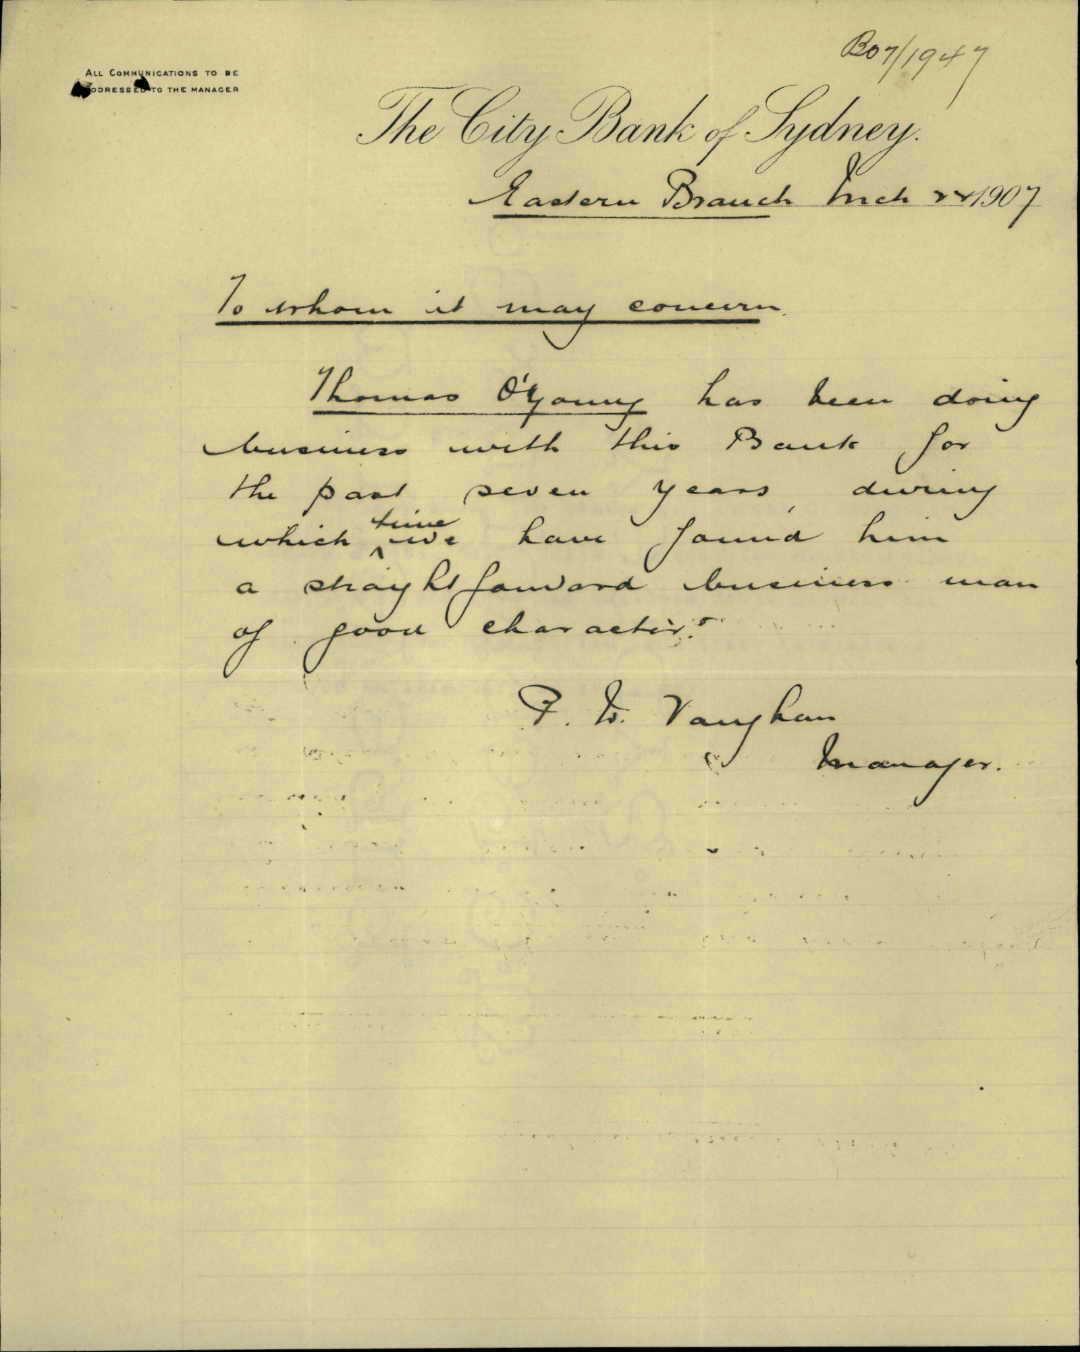 B07/1947
ALL COMMUNICATIONS TO BE
ADDRESSED TO THE MANAGER
The City Bank of Sydney.
Eastern Branch Mch 22 1907
To whom it may concern.
Thomas O'Young has been doing
business with this Bank for
the past seven years, during
which time we have found him
a straightforward business man
of good character.
F. W. Vaughan
Manager.